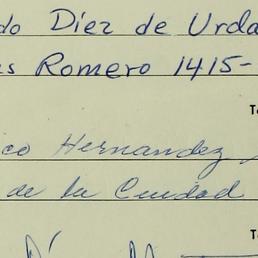 do Díez de Urda
s Romero 1415-
T
co Hernandez
de la Ciudad
T